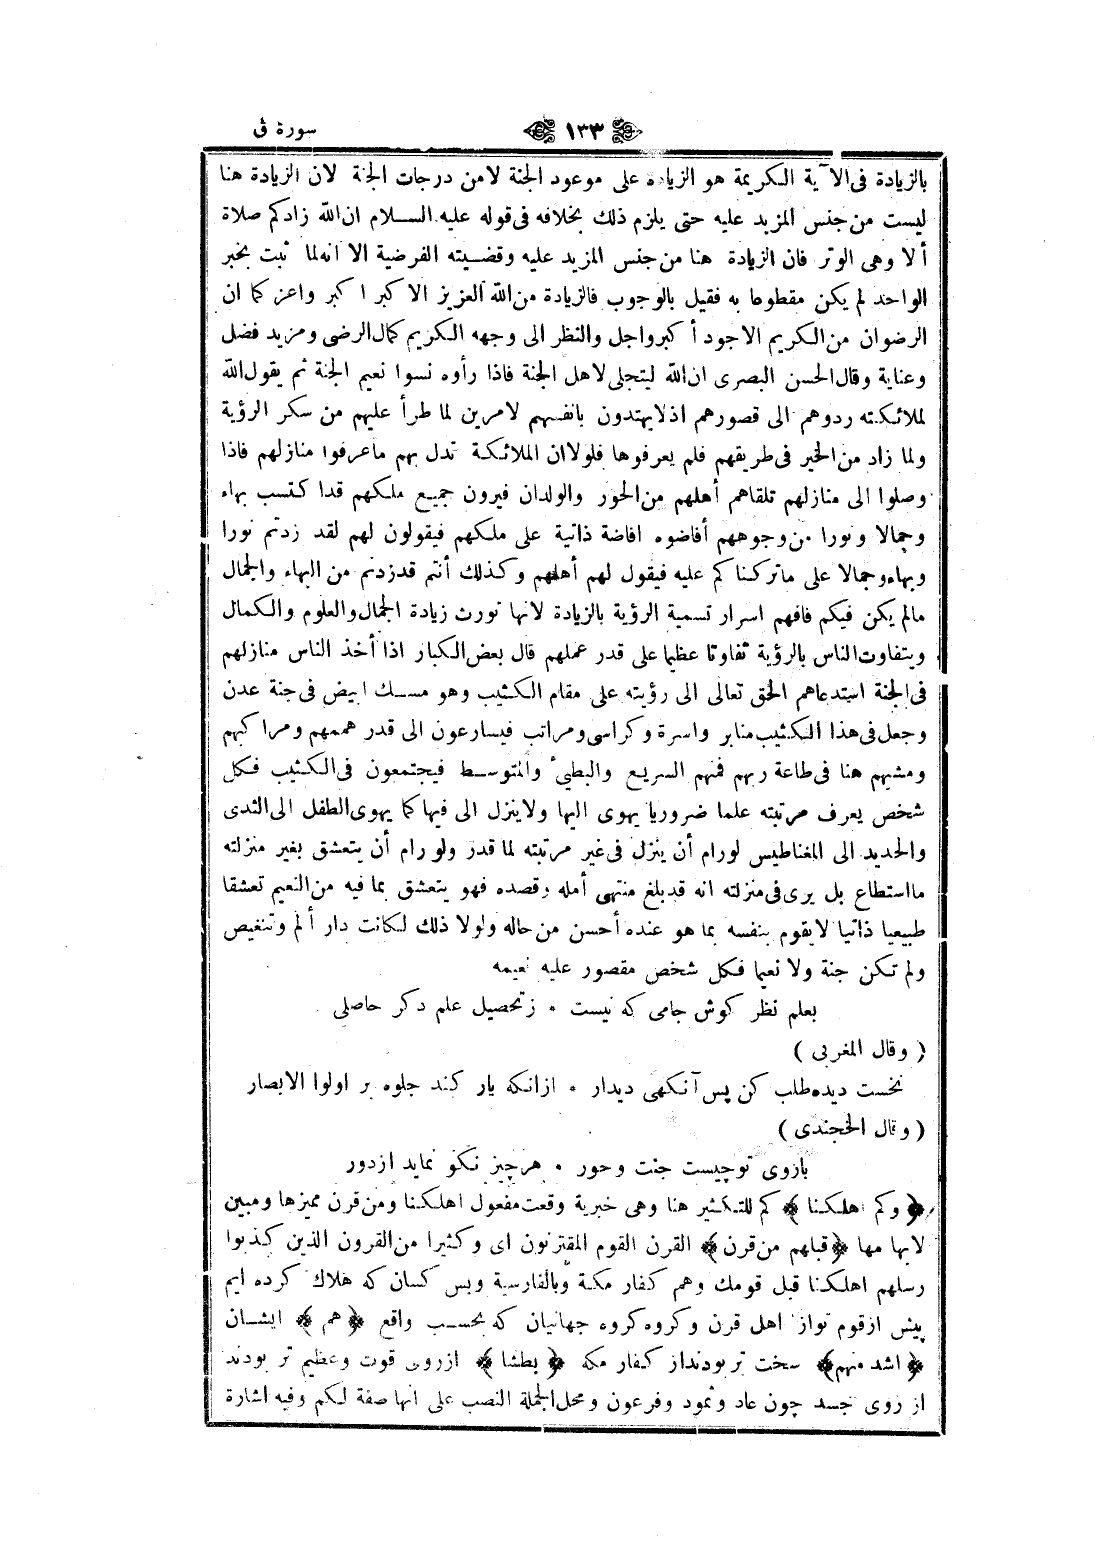 سورة ق
١٣٣
بالزيادة فى الآية الكريمة هو الزيادة على موعود الجنة لا من درجات الجنة لان الزيادة هنا
ليست من جنس المزيد عليه حتى يلزم ذلك بخلافه فى قوله عليه السلام ان الله زادكم صلاة
ألا وهى الوتر فان الزيادة هنا من جنس المزيد عليه وقضيته الفرضية الا انه لما ثبت بخبر
الواحد لم يكن مقطوعا به فقيل بالوجوب فالزيادة من الله العزيز الاكبر اكبر واعز كما ان
الرضوان من الكريم الاجود أكبر واجل والنظر الى وجهه الكريم كمال الرضى ومزيد فضل
وعناية وقال الحسن البصرى ان الله ليتجلى لاهل الجنة فاذا رأوه نسوا نعيم الجنة ثم يقول الله
لملائكته ردوهم الى قصورهم اذ لا يهتدون بانفسهم لامرين لما طرأ عليهم من سكر الرؤية
ولما زاد من الخير فى طريقهم فلم يعرفوها فلولا ان الملائكة تدل بهم ما عرفوا منازلهم فاذا
وصلوا الى منازلهم تلقاهم أهلهم من الحور والولدان فيرون جميع ملكهم قد اكتسب بهاء
وجمالا ونورا من وجوههم أفاضوه افاضة ذاتية على ملكهم فيقولون لهم لقد زدتم نورا
وبهاء وجمالا على ما تركناكم عليه فيقول لهم أهلهم وكذلك أنتم قد زدتم من البهاء والجمال
مالم يكن فيكم فافهم اسرار تسمية الرؤية بالزيادة لانها تورث زيادة الجمال والعلوم والكمال
ويتفاوت الناس بالرؤية تفاوتا عظيما على قدر عملهم قال بعض الكبار اذا أخذ الناس منازلهم
فى الجنة استدعاهم الحق تعالى الى رؤيته على مقام الكثيب وهو مسك ابيض فى جنة عدن
وجعل فى هذا الكثيب منابر واسرة وكراسى ومراتب فيسارعون الى قدر هممهم ومراكبهم
ومشيهم هنا فى طاعة ربهم فمنهم السريع والبطئ والمتوسط فيجتمعون فى الكثيب فكل
شخص يعرف مرتبته علما ضروريا يهوى اليها ولا ينزل الى فيها كما يهوى الطفل الى الثدى
والحديد الى المغناطيس لو رام أن ينزل فى غير مرتبته لما قدر ولو رام أن يتعشق بغير منزلته
ما استطاع بل يرى فى منزلته انه قد بلغ منتهى أمله وقصده فهو يتعشق بما فيه من النعيم تعشقا
طبيعيا ذاتيا لا يقوم بنفسه بما هو عنده أحسن من حاله ولولا ذلك لكانت دار ألم وتنغيص
ولم تكن جنة ولا نعيما فكل شخص مقصور عليه نعيمه
بعلم نظر كوش جامى كه نيست ٭ زتحصيل علم دكر حاصلى
( وقال المغربى )
نخست ديده طلب كن پس آنكهى ديدار ٭ ازانكه يار كند جلوه بر اولوا الابصار
( وقال الخجندى )
باروى توچيست جنت وحور ٭ هرچيز نكو نمايد ازدور
﴿ وكم اهلكنا ﴾ كم للتكثير هنا وهى خبرية وقعت مفعول اهلكنا ومن قرن مميزها ومبين
لابهامها ﴿ قبلهم من قرن ﴾ القرن القوم المقترنون اى وكثيرا من القرون الذين كذبوا
رسلهم اهلكنا قبل قومك وهم كفار مكة وبالفارسية وبس كسان كه هلاك كرده ايم
پيش ازقوم تواز اهل قرن وكروه كروه جهانيان كه بحسب واقع ﴿ هم ﴾ ايشان
﴿ اشد منهم ﴾ سخت تر بودنداز كفار مكه ﴿ بطشا ﴾ ازروى قوت وعظيم تر بودند
از روى جسد چون عاد وثمود وفرعون ومحل الجملة النصب على انها صفة لكم وفيه اشارة